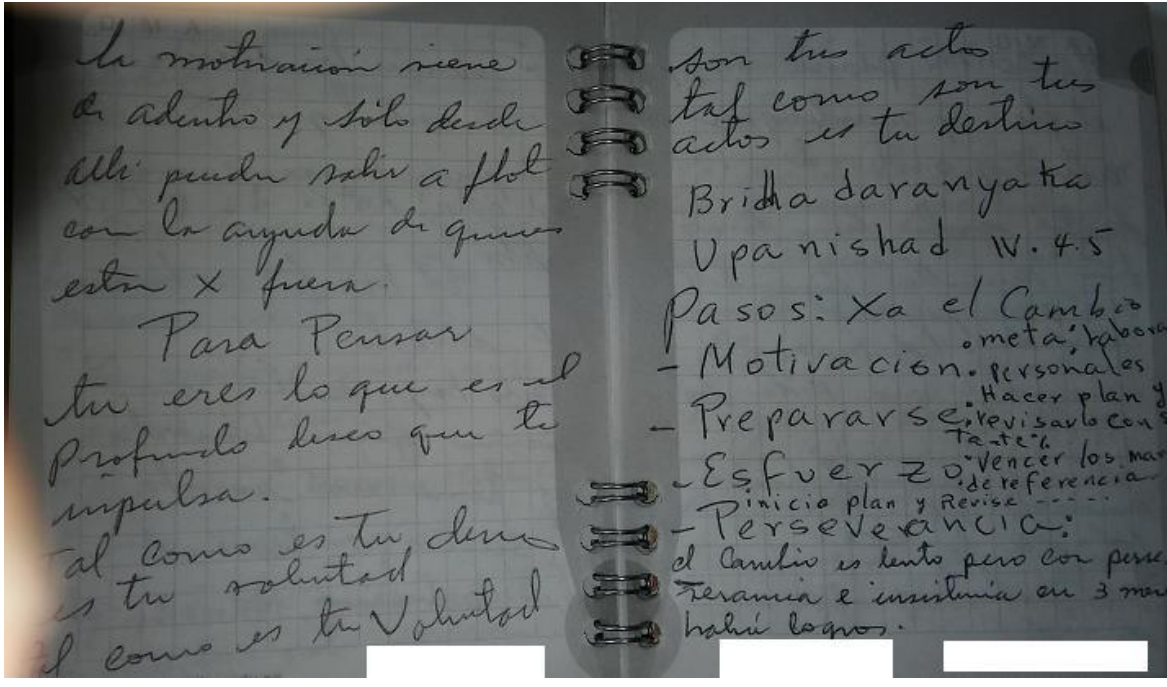 la motivación viene
de adentro y sólo desde
alli pueden salir a flot
con la ayuda de quienes
estan x fuera.
Para Pensar
tu eres lo que es el
Profundo deseo que te
impulsa.
Tal como es tu deseo
es tu voluntad
l como es tu Voluntad
son tus actos
tal como son tus
actos es tu destino
Bridha daranyaka
Upanishad IV. 4.5
Pasos: Xa el Cambio
- Motivacion. • meta;
personales
- Prepararse: • Hacer plan y
revisarlo cons
tante%
- Esfuerzo • Vencer los mar
de referencia
inicio plan y Revise -----
- Perseverancia:
el Cambio es lento pero con perse
verancia e insistencia en 3 mes
habrá logros.